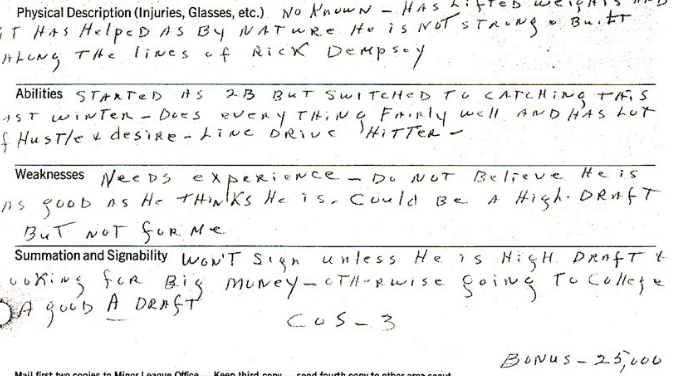 Physical Description (Injuries, Glasses, etc.) No Known - HAS LiFTED WeigHTS AND
iT HAS HelpeD AS BY NATURE He is NOT STRONG + BuilT
ALONG THe liNes of RicK DempSey
Abilities STARTeD AS 2B BUT SWiTCHeD TO CATCHiNG THiS
AST WiNTeR - Does eveRY THiNG FAiRly well AND HAS LOT
f HusTle + desiRe - LiNe DRiVe HiTTeR -
Weaknesses NeeDS expeRieNce - Do NOT Believe He is
AS gooD AS He THiNKS He is. Could Be A HigH. DRAFT
BuT NOT foR Me
Summation and Signability WON'T SigN uNless He is HigH DRAFT +
ooKiNg foR Big MoNey - oTHeRwise goiNg To College
A gooD A DRAFT
CoS - 3
BoNus - 25,000
Mail first two copies to Minor League Office Keep third copy send fourth copy to other area scout